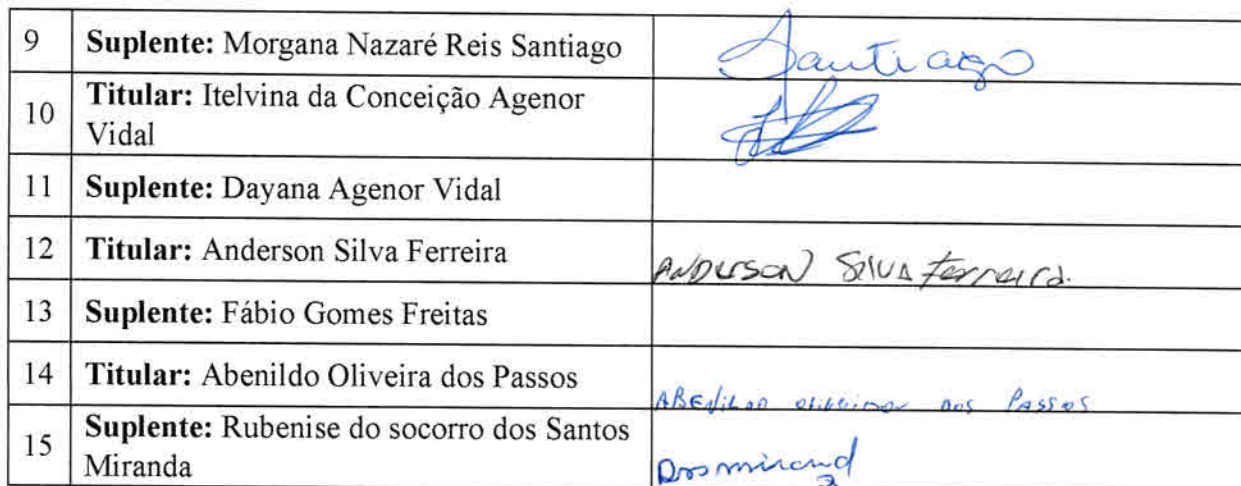 9 Suplente: Morgana Nazaré Reis Santiago Santiago
10 Titular: Itelvina da Conceição Agenor
Vidal
11 Suplente: Dayana Agenor Vidal
12 Titular: Anderson Silva Ferreira ANDERSON Silva Ferreira.
13 Suplente: Fábio Gomes Freitas
14 Titular: Abenildo Oliveira dos Passos ABENILDO oliveira dos Passos
15 Suplente: Rubenise do socorro dos Santos
Miranda